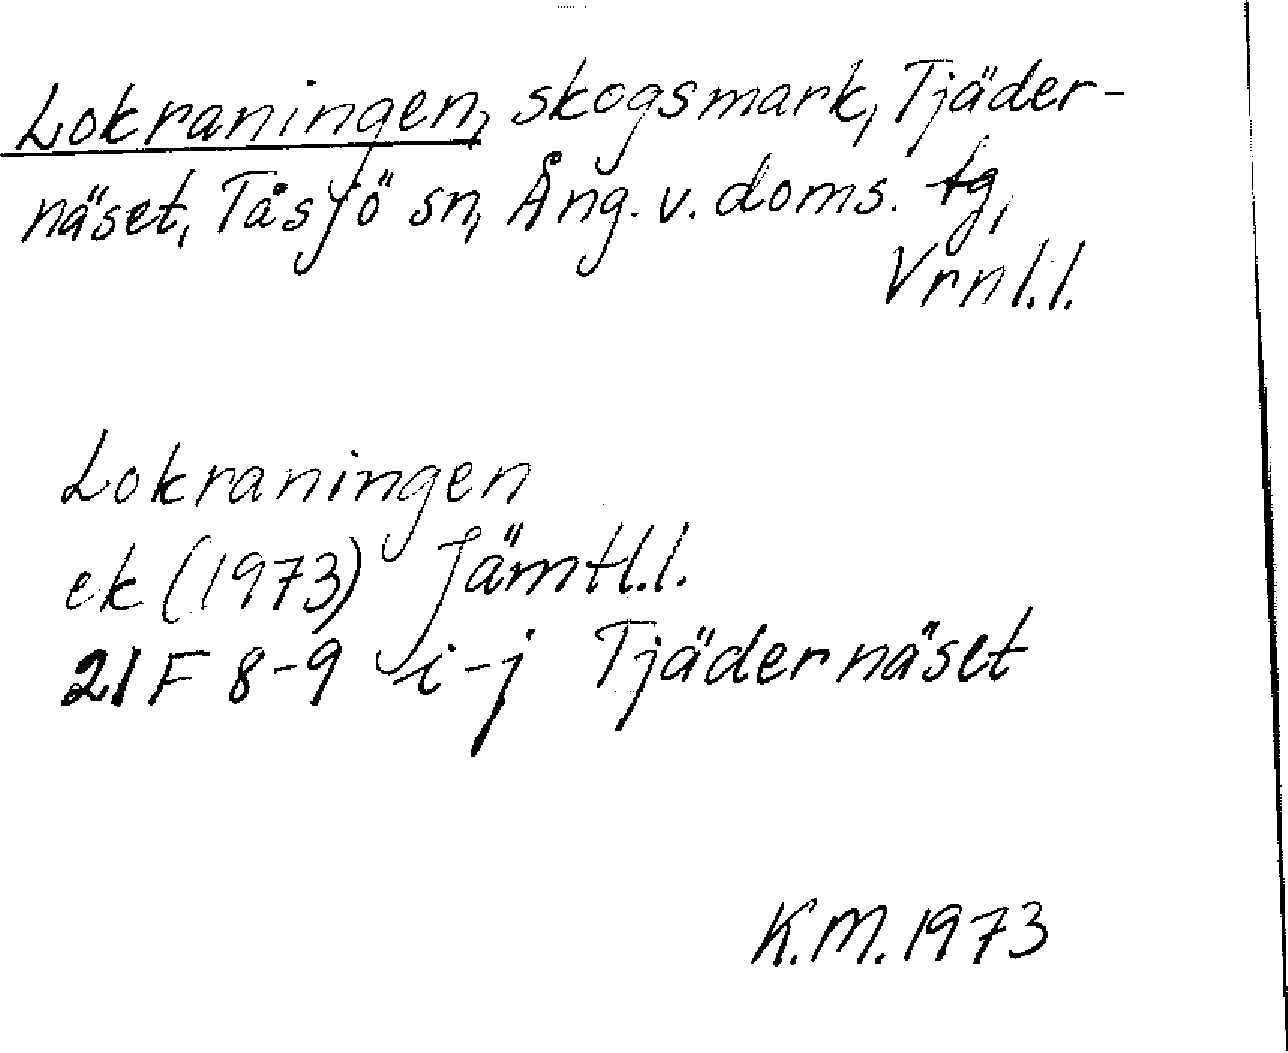 Lokraningen, skogsmark, Tjäder-
näset, Tåsjö sn, Ång. v. doms. tg,
Vrnl.l.
Lokraningen
ek (1973) Jämtl.l.
21 F 8-9 i-j Tjädernäset
K.M. 1973